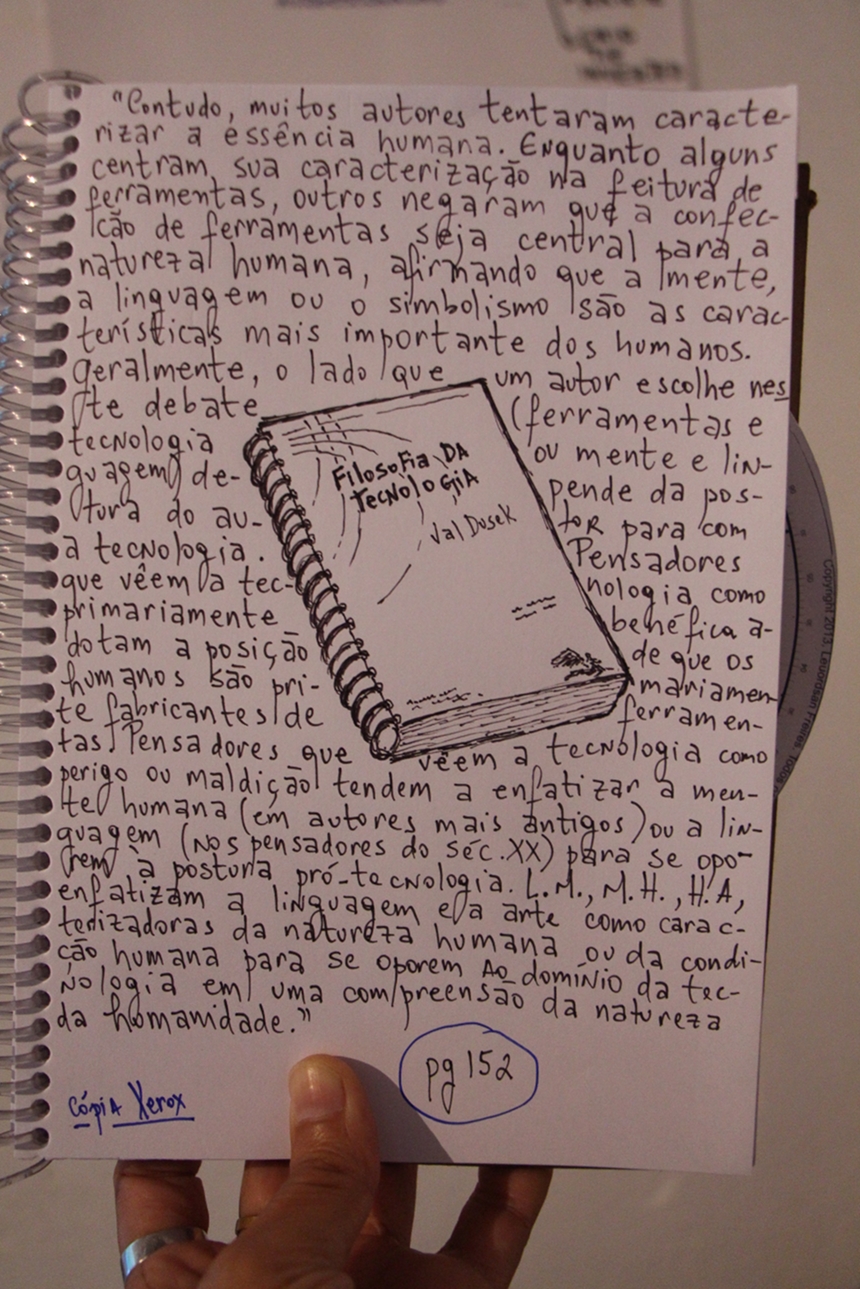 "Contudo, muitos autores tentaram caracte-
rizar a essência humana. Enquanto alguns
centram sua caracterização na feitura de
ferramentas, outros negaram que a confec-
ção de ferramentas seja central para a
natureza humana, afirmando que a mente,
a linguagem ou o simbolismo são as carac-
terísticas mais importante dos humanos.
geralmente, o lado que um autor escolhe nes
te debate (ferramentas e
tecnologia ou mente e lin-
guagem) de- pende da pos-
tura do au- tor para com
a tecnologia. Pensadores
que vêem a tec- nologia como
primariamente benéfica a-
dotam a posição de que os
humanos são pri- mariamen
te fabricantes de ferramen-
tas. Pensadores que vêem a tecnologia como
perigo ou maldição tendem a enfatizar a men-
te humana (em autores mais antigos) ou a lin-
guagem (nos pensadores do séc. XX) para se opo-
rem à postura pró-tecnologia. L.M., M.H., H.A,
enfatizam a linguagem e/a arte como carac-
terizadoras da natureza humana ou da condi-
ção humana para se oporem ao domínio da tec-
nologia em uma compreensão da natureza
da humanidade."
Filosofia da
Tecnologia
Val Dusek
pg 152
Cópia Xerox
Copyright 2013, Leuordsan Freires Todos